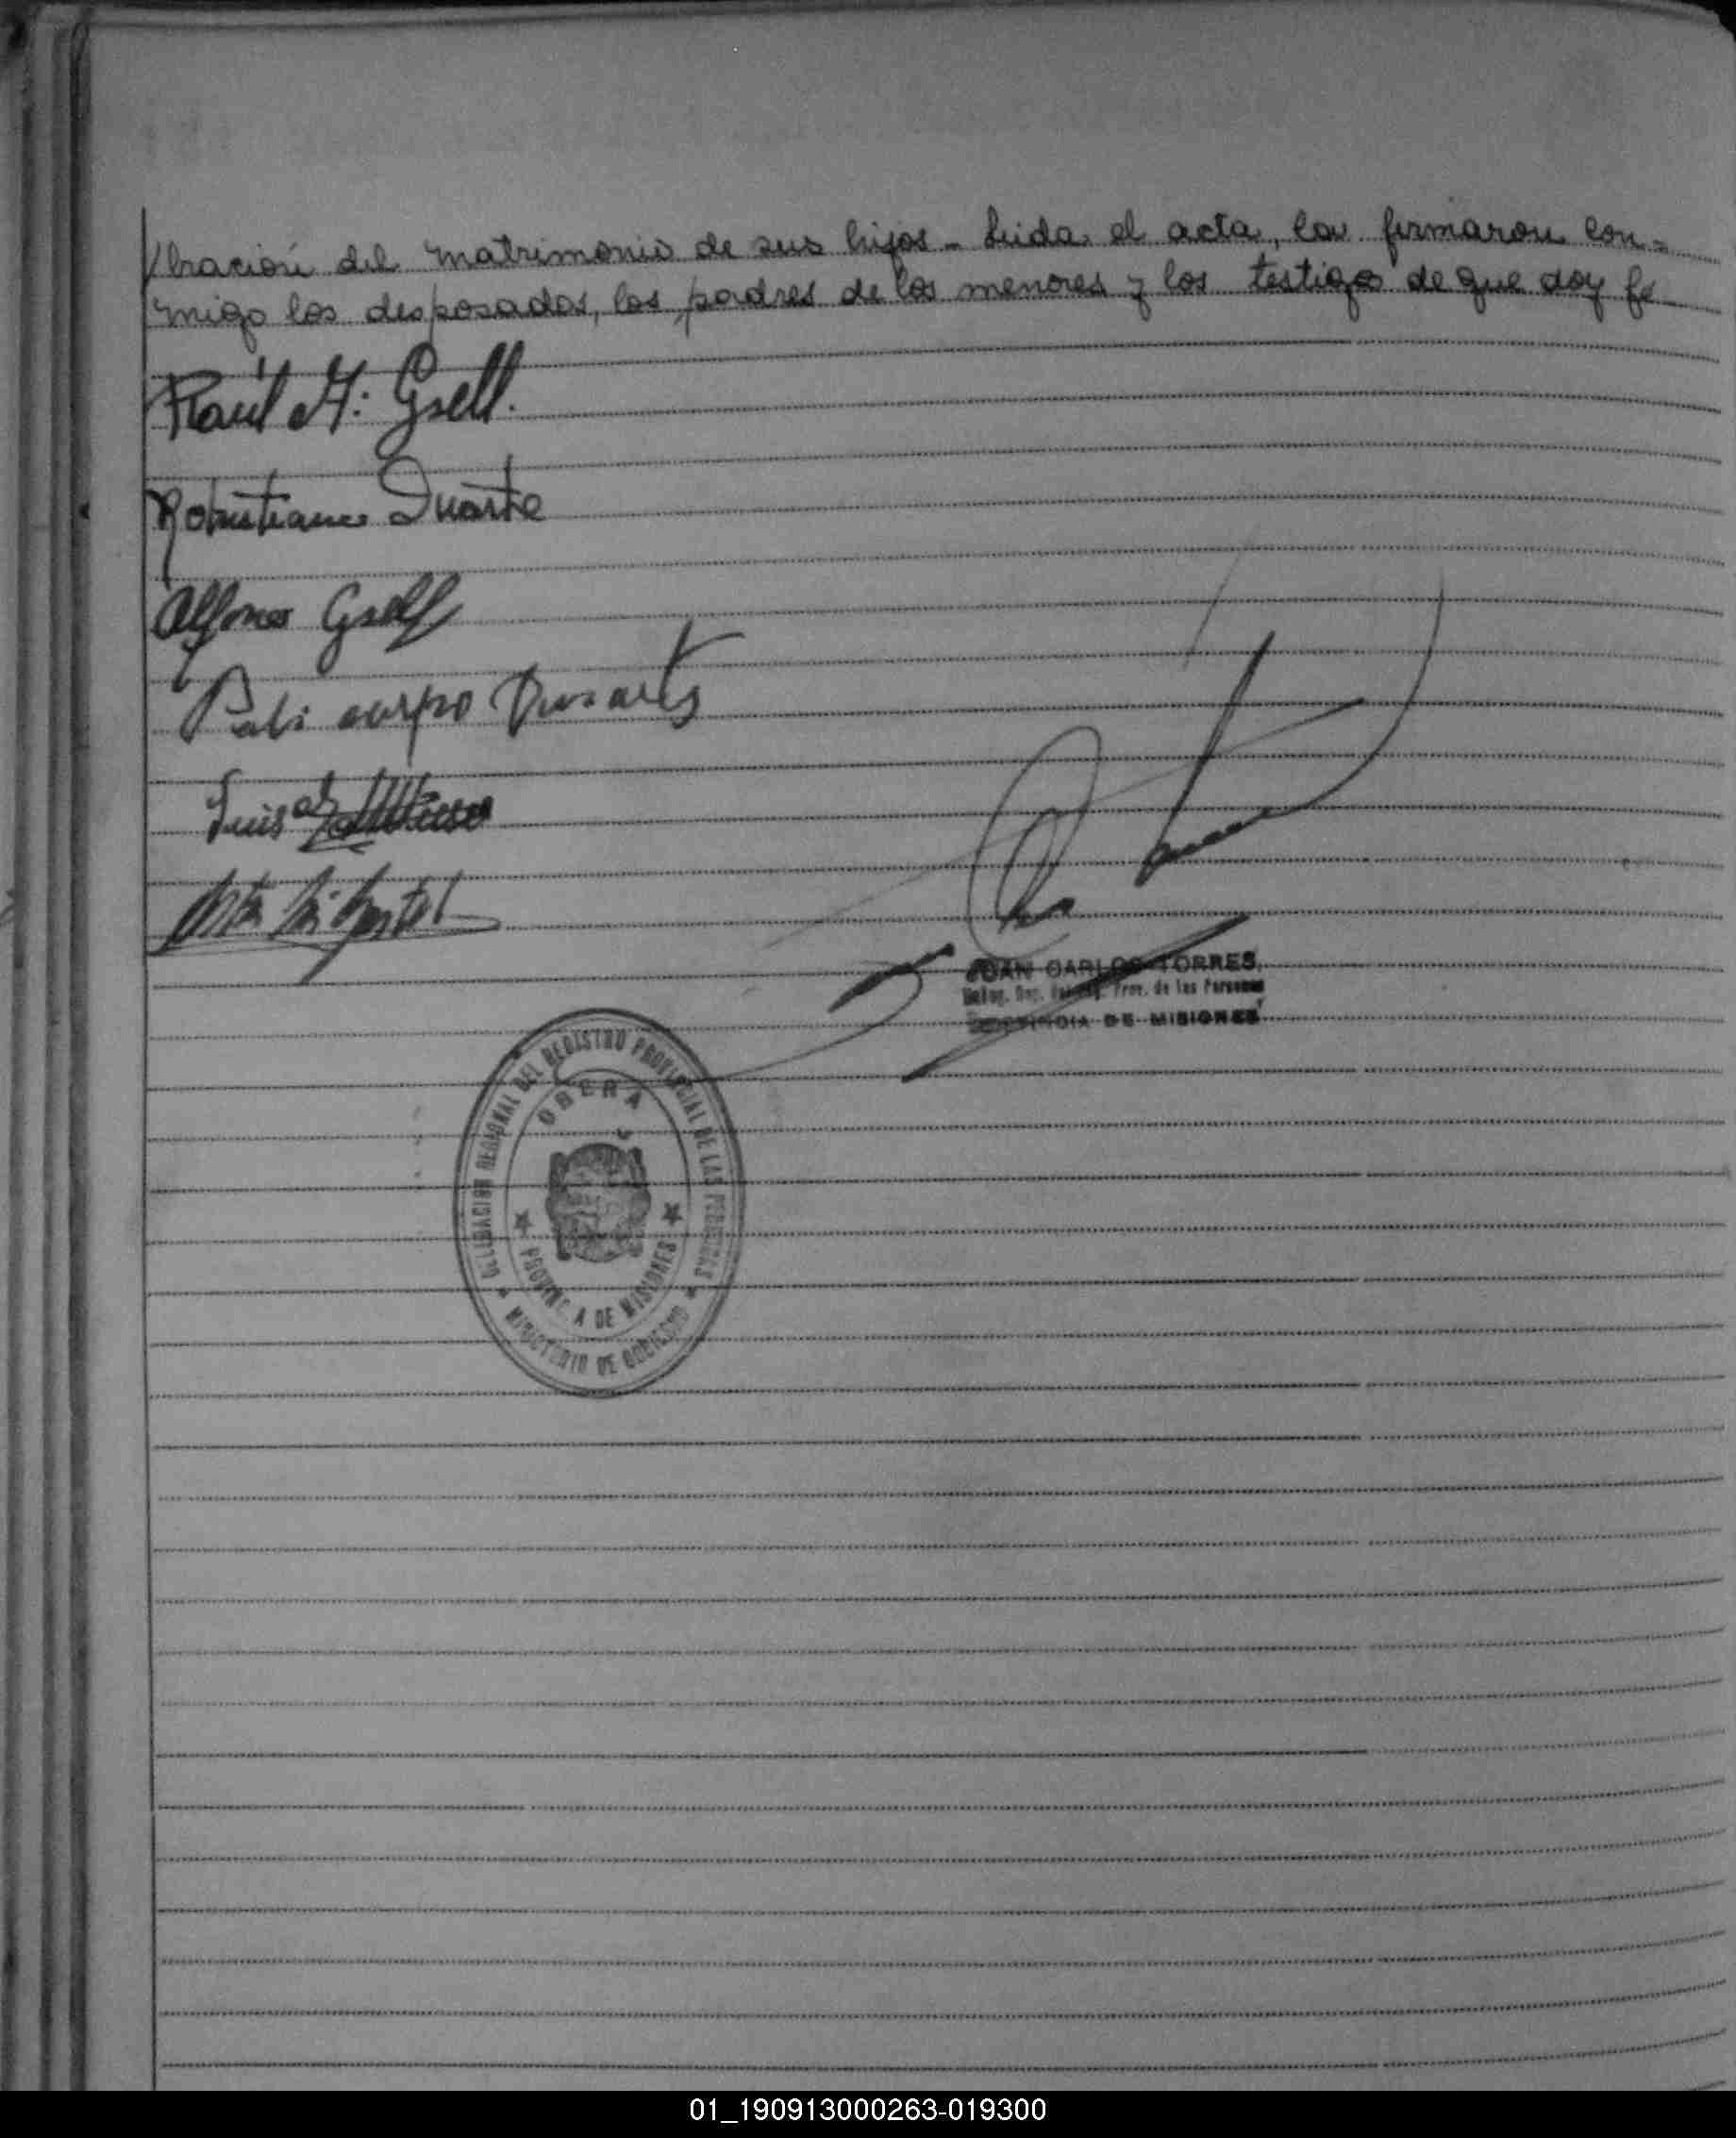 bración del matrimonio de sus hijos - Leida el acta, la firmaron con=
migo los desposados, los padres de los menores y los testigos de que doy fe
Raúl A. Gsell.
Robustiana Duarte
Alfonso Gsell
Poli carpo Duarte
Luis
JUAN CARLOS TORRES
Prov. de las Personas
PROVINCIA DE MISIONES
DELEGACION REGIONAL DEL REGISTRO PROVINCIAL DE LAS PERSONAS
OBERA
PROVINCIA DE MISIONES
MINISTERIO DE GOBIERNO
01_190913000263-019300